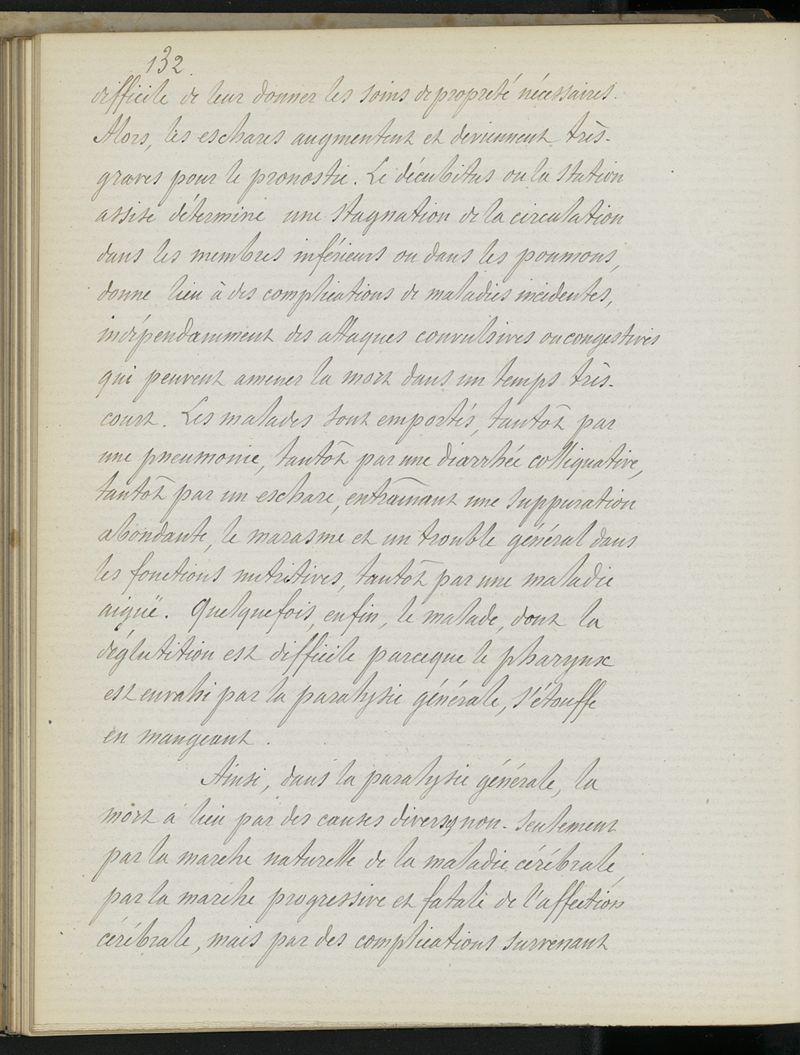 132.
difficile de leur donner les soins de propreté nécessaires.
Alors, les eschares augmentent et deviennent très-
graves pour le pronostic. Le décubitus ou la station
assise détermine une stagnation de la circulation
dans les membres inférieurs ou dans les poumons,
donne lieu à des complications de maladies incidentes,
indépendamment des attaques convulsives ou congestives
qui peuvent amener la mort dans un temps très-
court. Les malades sont emportés, tantôt par
une pneumonie, tantôt par une diarrhée colliquative,
tantôt par un eschare, entraînant une suppuration
abondante, le marasme et un trouble général dans
les fonctions nutritives, tantôt par une maladie
aiguë. Quelquefois, enfin, le malade, dont la
déglutition est difficile parceque le pharynx
est envahi par la paralysie générale, s'étouffe
en mangeant.
Ainsi, dans la paralysie générale, la
mort a lieu par des causes diverses, non-seulement
par la marche naturelle de la maladie cérébrale,
par la marche progressive et fatale de l'affection
cérébrale, mais par des complications survenant